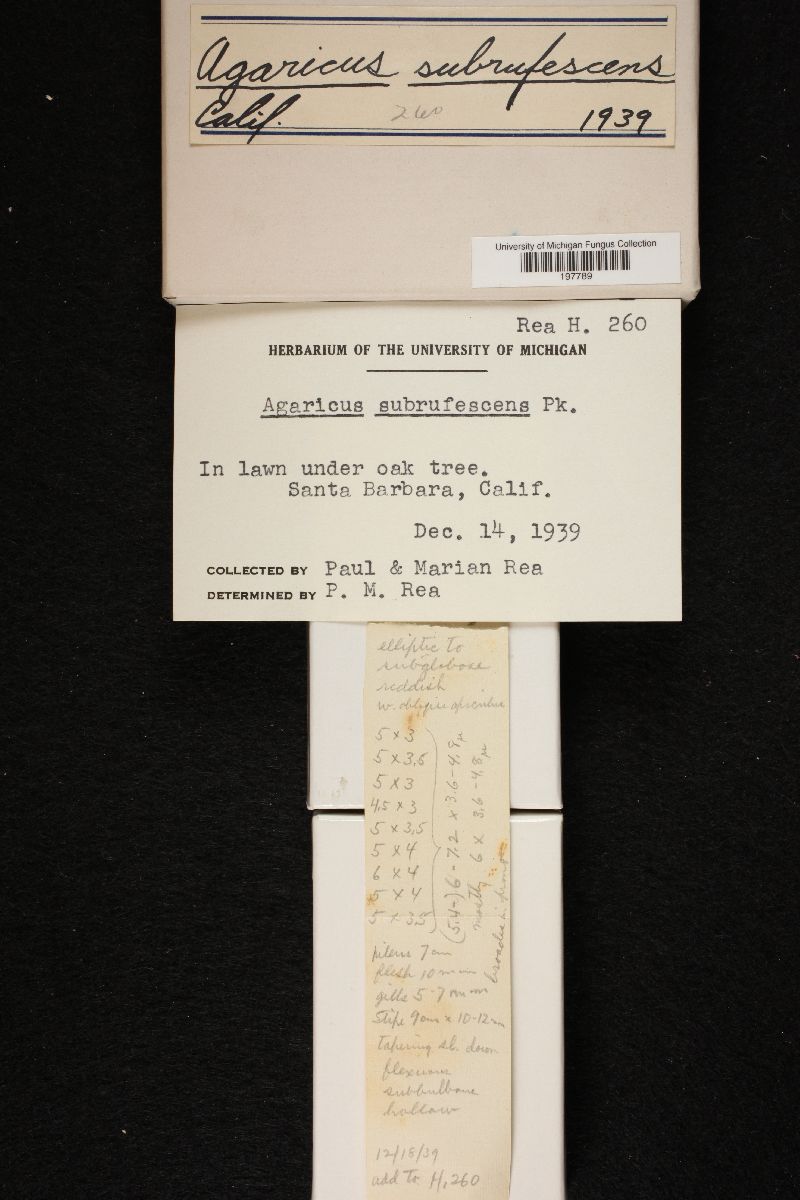 Agaricus subrufescens
Calif. 260 1939
University of Michigan Fungus Collection
197789
Rea H. 260
HERBARIUM OF THE UNIVERSITY OF MICHIGAN
Agaricus subrufescens Pk.
In lawn under oak tree.
Santa Barbara, Calif.
Dec. 14, 1939
COLLECTED BY Paul & Marian Rea
DETERMINED BY P. M. Rea
elliptic to
subglobose
reddish
w. oblique apiculus
5 x 3
5 x 3.6
5 x 3
4.5 x 3
5 x 3.5
5 x 4
6 x 4
5 x 4
5 x 3.5
(5.4-) 6 - 7.2 x 3.6 - 4.8 µ
mostly 6 x 3.6 - 4.8 µ
pileus 7 cm
flesh 10 mm
gills 5-7 mm
Stipe 9 cm x 10-12 mm
tapering sl. down
flexuous
subbulbous
hollow
12/18/39
add to H. 260